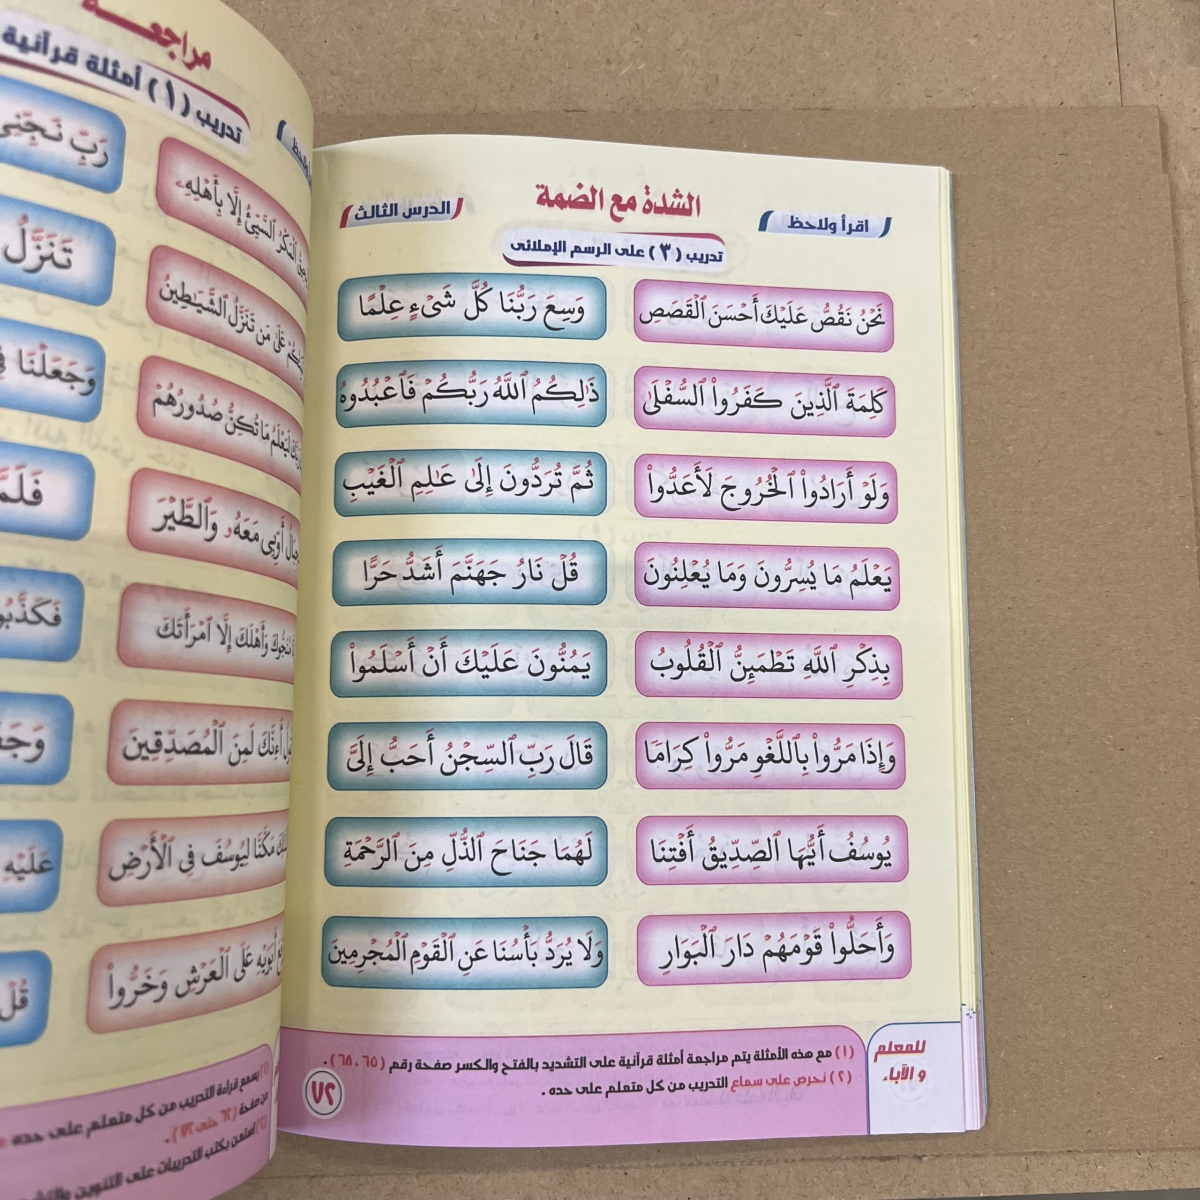 الشدة مع الضمة
اقرأ ولاحظ
الدرس الثالث
تدريب (٣) على الرسم الإملائى
نَحْنُ نَقُصُّ عَلَيْكَ أَحْسَنَ ٱلْقَصَصِ
وَسِعَ رَبُّنَا كُلَّ شَىْءٍ عِلْمًا
كَلِمَةَ ٱلَّذِينَ كَفَرُوا۟ ٱلسُّفْلَىٰ
ذَٰلِكُمُ ٱللَّهُ رَبُّكُمْ فَٱعْبُدُوهُ
وَلَوْ أَرَادُوا۟ ٱلْخُرُوجَ لَأَعَدُّوا۟
ثُمَّ تُرَدُّونَ إِلَىٰ عَٰلِمِ ٱلْغَيْبِ
يَعْلَمُ مَا يُسِرُّونَ وَمَا يُعْلِنُونَ
قُلْ نَارُ جَهَنَّمَ أَشَدُّ حَرًّا
بِذِكْرِ ٱللَّهِ تَطْمَئِنُّ ٱلْقُلُوبُ
يَمُنُّونَ عَلَيْكَ أَنْ أَسْلَمُوا۟
وَإِذَا مَرُّوا۟ بِٱللَّغْوِ مَرُّوا۟ كِرَامًا
قَالَ رَبِّ ٱلسِّجْنُ أَحَبُّ إِلَىَّ
يُوسُفُ أَيُّهَا ٱلصِّدِّيقُ أَفْتِنَا
لَهُمَا جَنَاحَ ٱلذُّلِّ مِنَ ٱلرَّحْمَةِ
وَأَحَلُّوا۟ قَوْمَهُمْ دَارَ ٱلْبَوَارِ
وَلَا يُرَدُّ بَأْسُنَا عَنِ ٱلْقَوْمِ ٱلْمُجْرِمِينَ
للمعلم
و الآباء
(١) مع هذه الأمثلة يتم مراجعة أمثلة قرآنية على التشديد بالفتح والكسر صفحة رقم (٦٥ ، ٦٨) .
(٢) نحرص على سماع التدريب من كل متعلم على حده .
٧٢
مراجعة
تدريب (١) أمثلة قرآنية
ٱلْمَكْرُ ٱلسَّيِّئُ إِلَّا بِأَهْلِهِۦ
رَبِّ نَجِّنِى
عَلَىٰ مَن تَنَزَّلُ ٱلشَّيَٰطِينُ
تَنَزَّلُ
لَيَعْلَمُ مَا تُكِنُّ صُدُورُهُمْ
وَجَعَلْنَا
أَوِّبِى مَعَهُۥ وَٱلطَّيْرَ
وَأَهْلَكَ إِلَّا ٱمْرَأَتَكَ
أَءِنَّكَ لَمِنَ ٱلْمُصَدِّقِينَ
مَكَّنَّا لِيُوسُفَ فِى ٱلْأَرْضِ
عَلَيْهِ
أَبَوَيْهِ عَلَى ٱلْعَرْشِ وَخَرُّوا۟
قُلْ
(١) يسمع قراءة التدريب من كل متعلم على حده
من صفحة
على التنوين